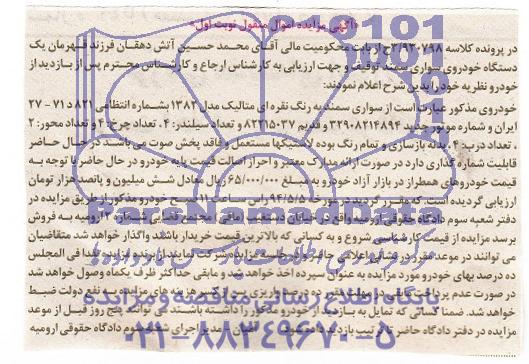 «آگهی مزایده اموال منقول نوبت اول»
در پرونده کلاسه ۳/۹۲۰۷۹۸ ج از بابت محکومیت مالی آقای محمد حسین آتش دهقان فرزند قهرمان یک
دستگاه خودروی سواری سمند توقیف و جهت ارزیابی به کارشناس ارجاع و کارشناس محترم پس از بازدید از
خودرو نظریه خود را بدین شرح اعلام نمودند:
خودروی مذکور عبارت است از سواری سمند به رنگ نقره ای متالیک مدل ۱۳۸۲ بشماره انتظامی ۸۲۱د۷۱ - ۲۷
ایران و شماره موتور جدید ۳۲۹۰۸۲۱۴۸۹۴ و قدیم ۸۲۲۱۵۰۳۷ و تعداد سیلندر: ۴ ، تعداد چرخ: ۴ و تعداد محور: ۲
، تعداد درب: ۴ ، بدنه بازسازی و تمام رنگ بوده لاستیکها مستعمل و فاقد پخش صوت می باشند در حال حاضر
قابلیت شماره گذاری دارد در صورت ارائه مدارک معتبر و احراز اصالت قیمت پایه خودرو در حال حاضر با توجه به
قیمت خودروهای همطراز در بازار آزاد خودرو مبلغ ۶۵/۰۰۰/۰۰۰ ریال معادل شش میلیون و پانصد هزار تومان
ارزیابی گردیده است. که مقرر گردید در مورخه ۹۴/۵/۵ راس ساعت ۱۱ صبح خودرو مذکور از طریق مزایده در
دفتر شعبه سوم دادگاه حقوقی ارومیه واقع در خیابان دانشکده مجتمع قضایی شماره ۲ ارومیه به فروش
برسد مزایده از قیمت کارشناسی شروع و به کسانی که بالاترین قیمت خریدار باشد واگذار خواهد شد متقاضیان
می توانند در موعد مقرر در مکان اعلامی حاضر و در جلسه مزایده شرکت نمایند از برنده مزایده فی المجلس
ده درصد بهای خودرو مورد مزایده به عنوان سپرده اخذ خواهد شد و مابقی حداکثر ظرف یکماه وصول خواهد شد
در صورت عدم پرداخت ده درصد واریزی پس از کسر هزینه های مزایده به نفع دولت ضبط
خواهد شد. ضمنا کسانی که تمایل به بازدید از خودرو مذکور را داشته باشند می توانند پنج روز قبل از موعد
مزایده در دفتر دادگاه حاضر تا ترتیب بازدید داده شود. مدیر اجرای شعبه سوم دادگاه حقوقی ارومیه
پایگاه اطلاع رسانی مناقصه و مزایده
۰۲۱-۸۸۳۴۹۶۷۰-۵